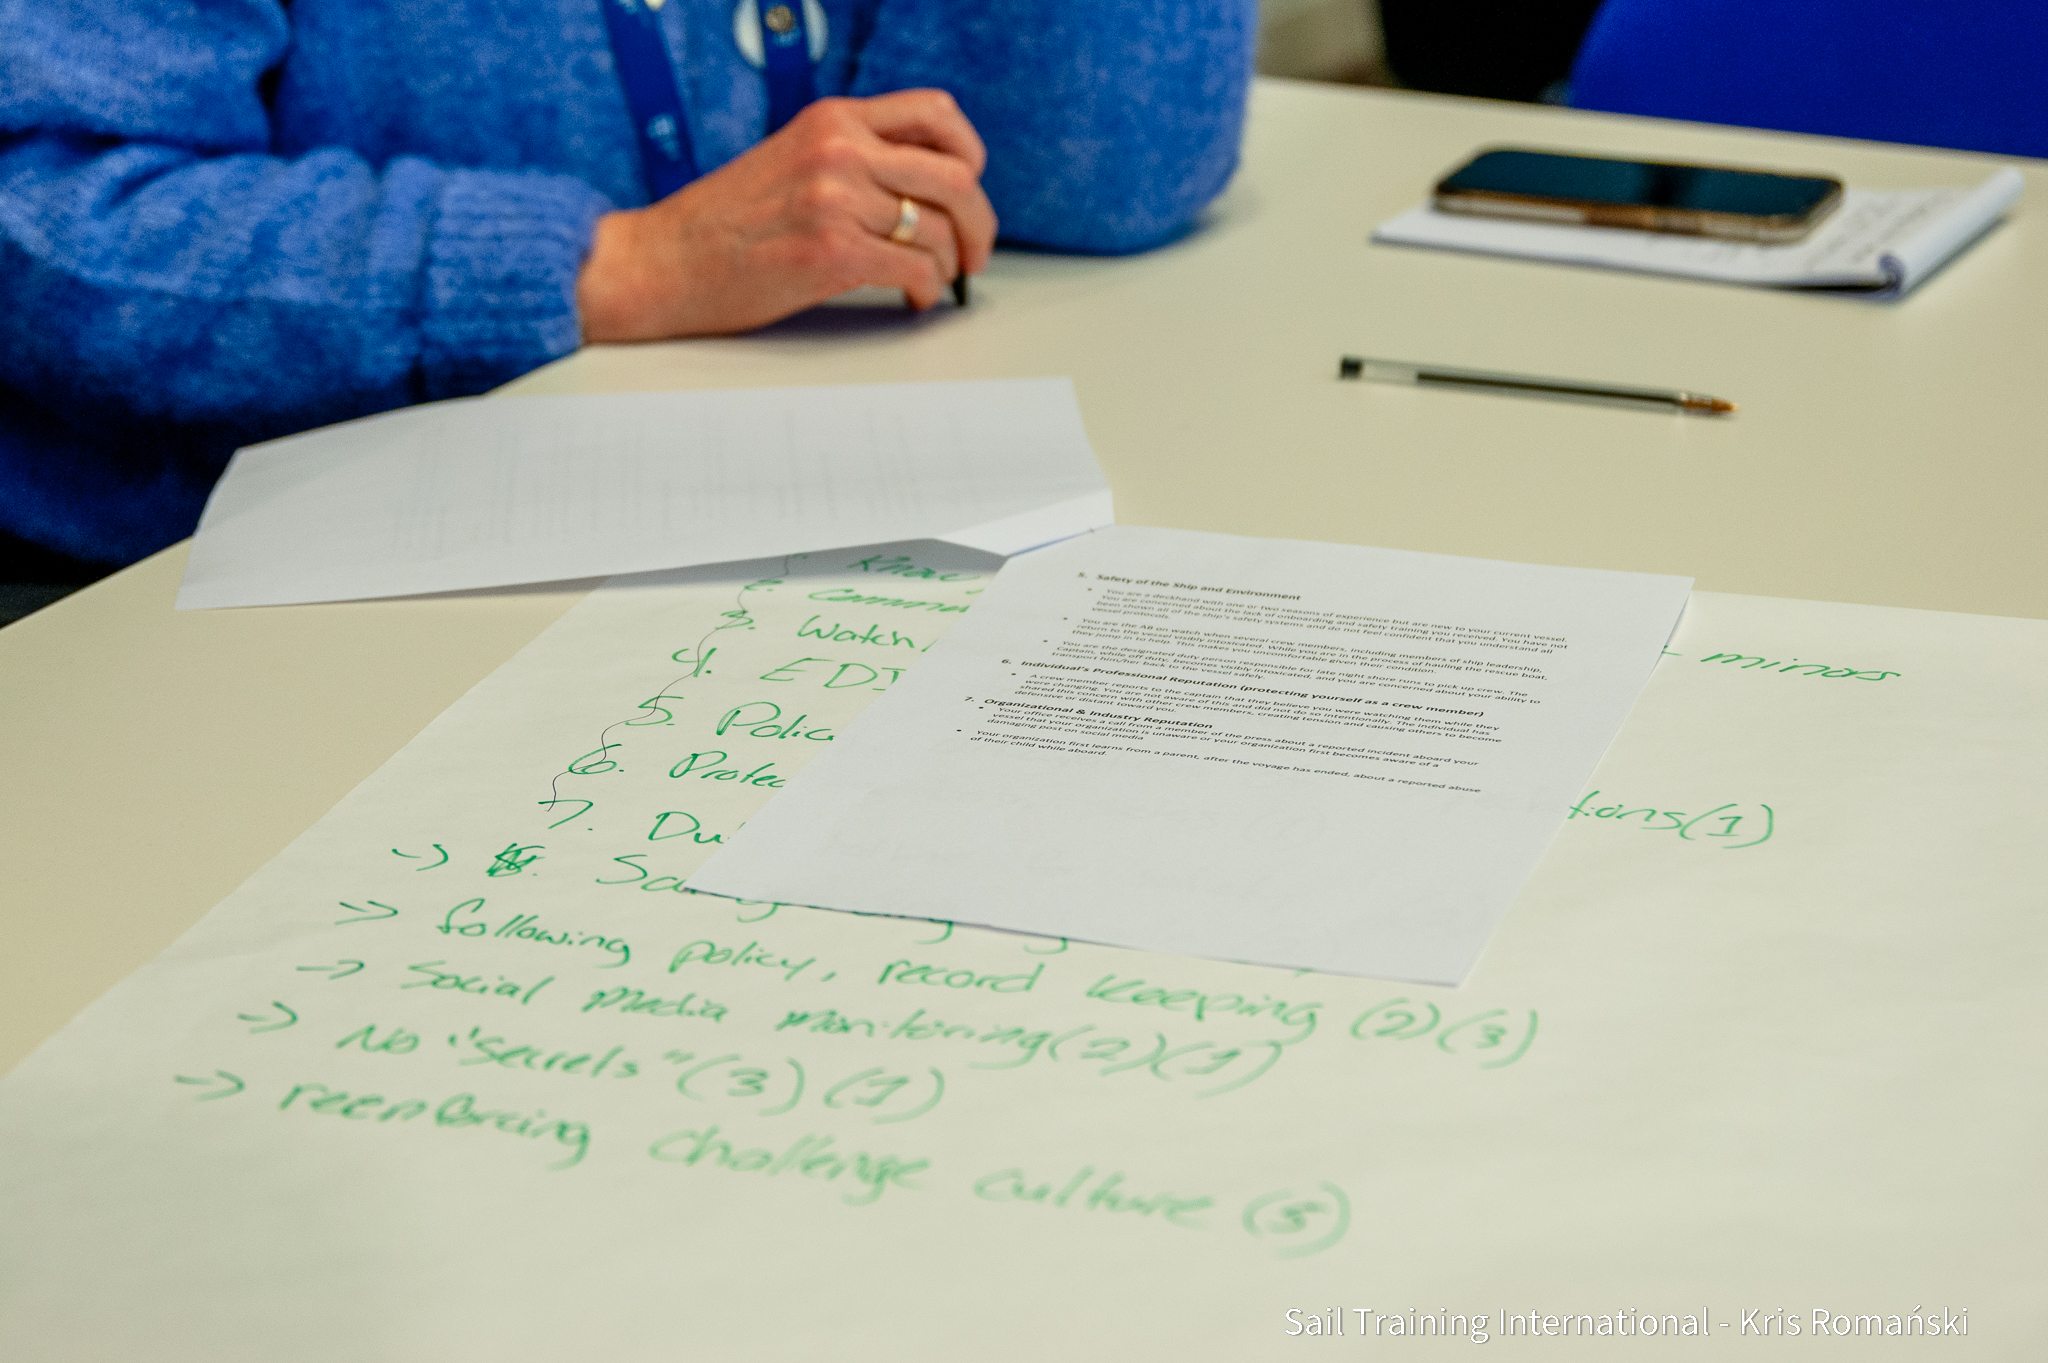 Know
2. Commu
3. Watch
4. EDI
5. Polic
6. Protec
7. Du
- minors
tions (1)
→ Sa
→ following policy, record keeping (2) (3)
→ Social Media Monitoring (2) (1)
→ No "secrets" (3) (1)
→ reenforcing challenge culture (5)
5. Safety of the Ship and Environment
• You are a deckhand with one or two seasons of experience but are new to your current vessel.
You are concerned about the lack of onboarding and safety training you received. You have not
been shown all of the ship's safety systems and do not feel confident that you understand all
vessel protocols.
• You are the AB on watch when several crew members, including members of ship leadership,
return to the vessel visibly intoxicated. While you are in the process of hauling the rescue boat,
they jump in to help. This makes you uncomfortable given their condition.
• You are the designated duty person responsible for late night shore runs to pick up crew. The
Captain, while off duty, becomes visibly intoxicated, and you are concerned about your ability to
transport him/her back to the vessel safely.
6. Individual's Professional Reputation (protecting yourself as a crew member)
• A crew member reports to the captain that they believe you were watching them while they
were changing. You are not aware of this and did not do so intentionally. The individual has
shared this concern with other crew members, creating tension and causing others to become
defensive or distant toward you.
7. Organizational & Industry Reputation
• Your office receives a call from a member of the press about a reported incident aboard your
vessel that your organization is unaware or your organization first becomes aware of a
damaging post on social media
• Your organization first learns from a parent, after the voyage has ended, about a reported abuse
of their child while aboard.
Sail Training International - Kris Romański